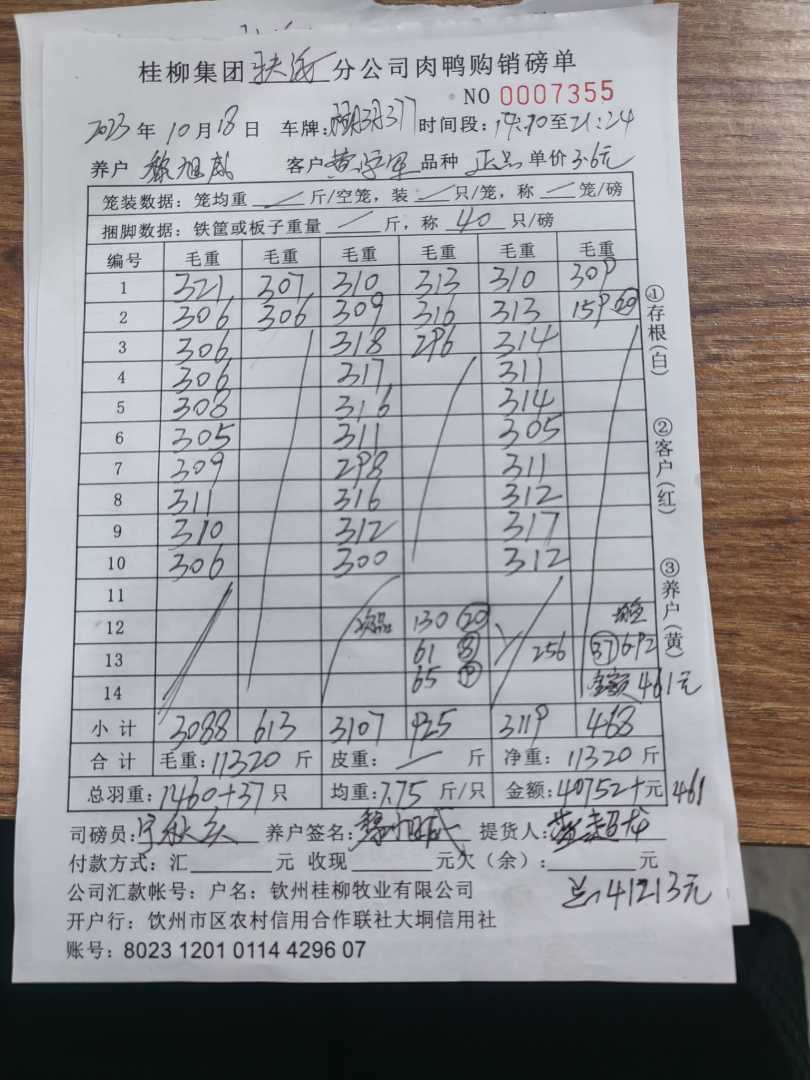 桂柳集团扶绥分公司肉鸭购销磅单
NO 0007355
2023年10月18日 车牌: 377 时间段: 至21:24
养户 黎旭威 客户 品种 正品 单价3.6元
笼装数据：笼均重 / 斤/空笼，装 / 只/笼，称 / 笼/磅
捆脚数据：铁筐或板子重量 / 斤，称 40 只/磅
编号 毛重 毛重 毛重 毛重 毛重 毛重
1 321 307 310 313 310 309
2 306 306 309 316 313 159 20
3 306 318 296 314
4 306 317 311
5 308 316 314
6 305 311 305
7 309 298 311
8 311 316 312
9 310 312 317
10 306 300 312
11
12 次品 130 20
13 61 8 256 37 692
14 65 9 金额461元
小计 3088 613 3107 925 3119 468
合计 毛重：11320斤 皮重： / 斤 净重：11320斤
总羽重：1460+37只 均重：7.75斤/只 金额：40752+元 461
司磅员： 养户签名：黎旭威 提货人：黄超龙
付款方式：汇 元 收现 元欠（余）： 元
公司汇款帐号：户名：钦州桂柳牧业有限公司 总：41213元
开户行：钦州市区农村信用合作联社大垌信用社
账号：8023 1201 0114 4296 07
①存根(白)
②客户(红)
③养户(黄)